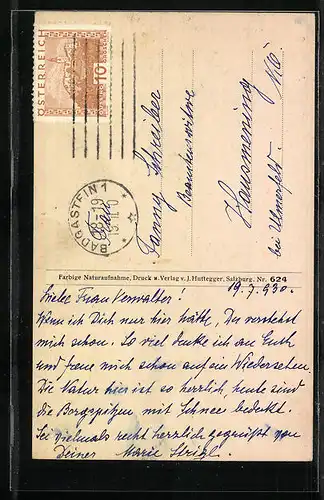 ÖSTERREICH
10
BADGASTEIN 1
Fanny Schreiber
Beamtenswitwe
Hausmening
bei Ulmerfeld. N.Ö.
Farbige Naturaufnahme, Druck u. Verlag v. J. Huttegger, Salzburg. Nr. 624
19.7.930.
Liebe Frau Verwalter!
Wenn ich Dich nur hier hätte, Du verstehst
mich schon. So viel denke ich an Euch
und freue mich schon auf ein Wiedersehen.
Die Natur hier ist so herrlich, heute sind
die Bergspitzen mit Schnee bedeckt.
Sei vielmals recht herzlich gegrüßt von
Deiner Marie Strigl.